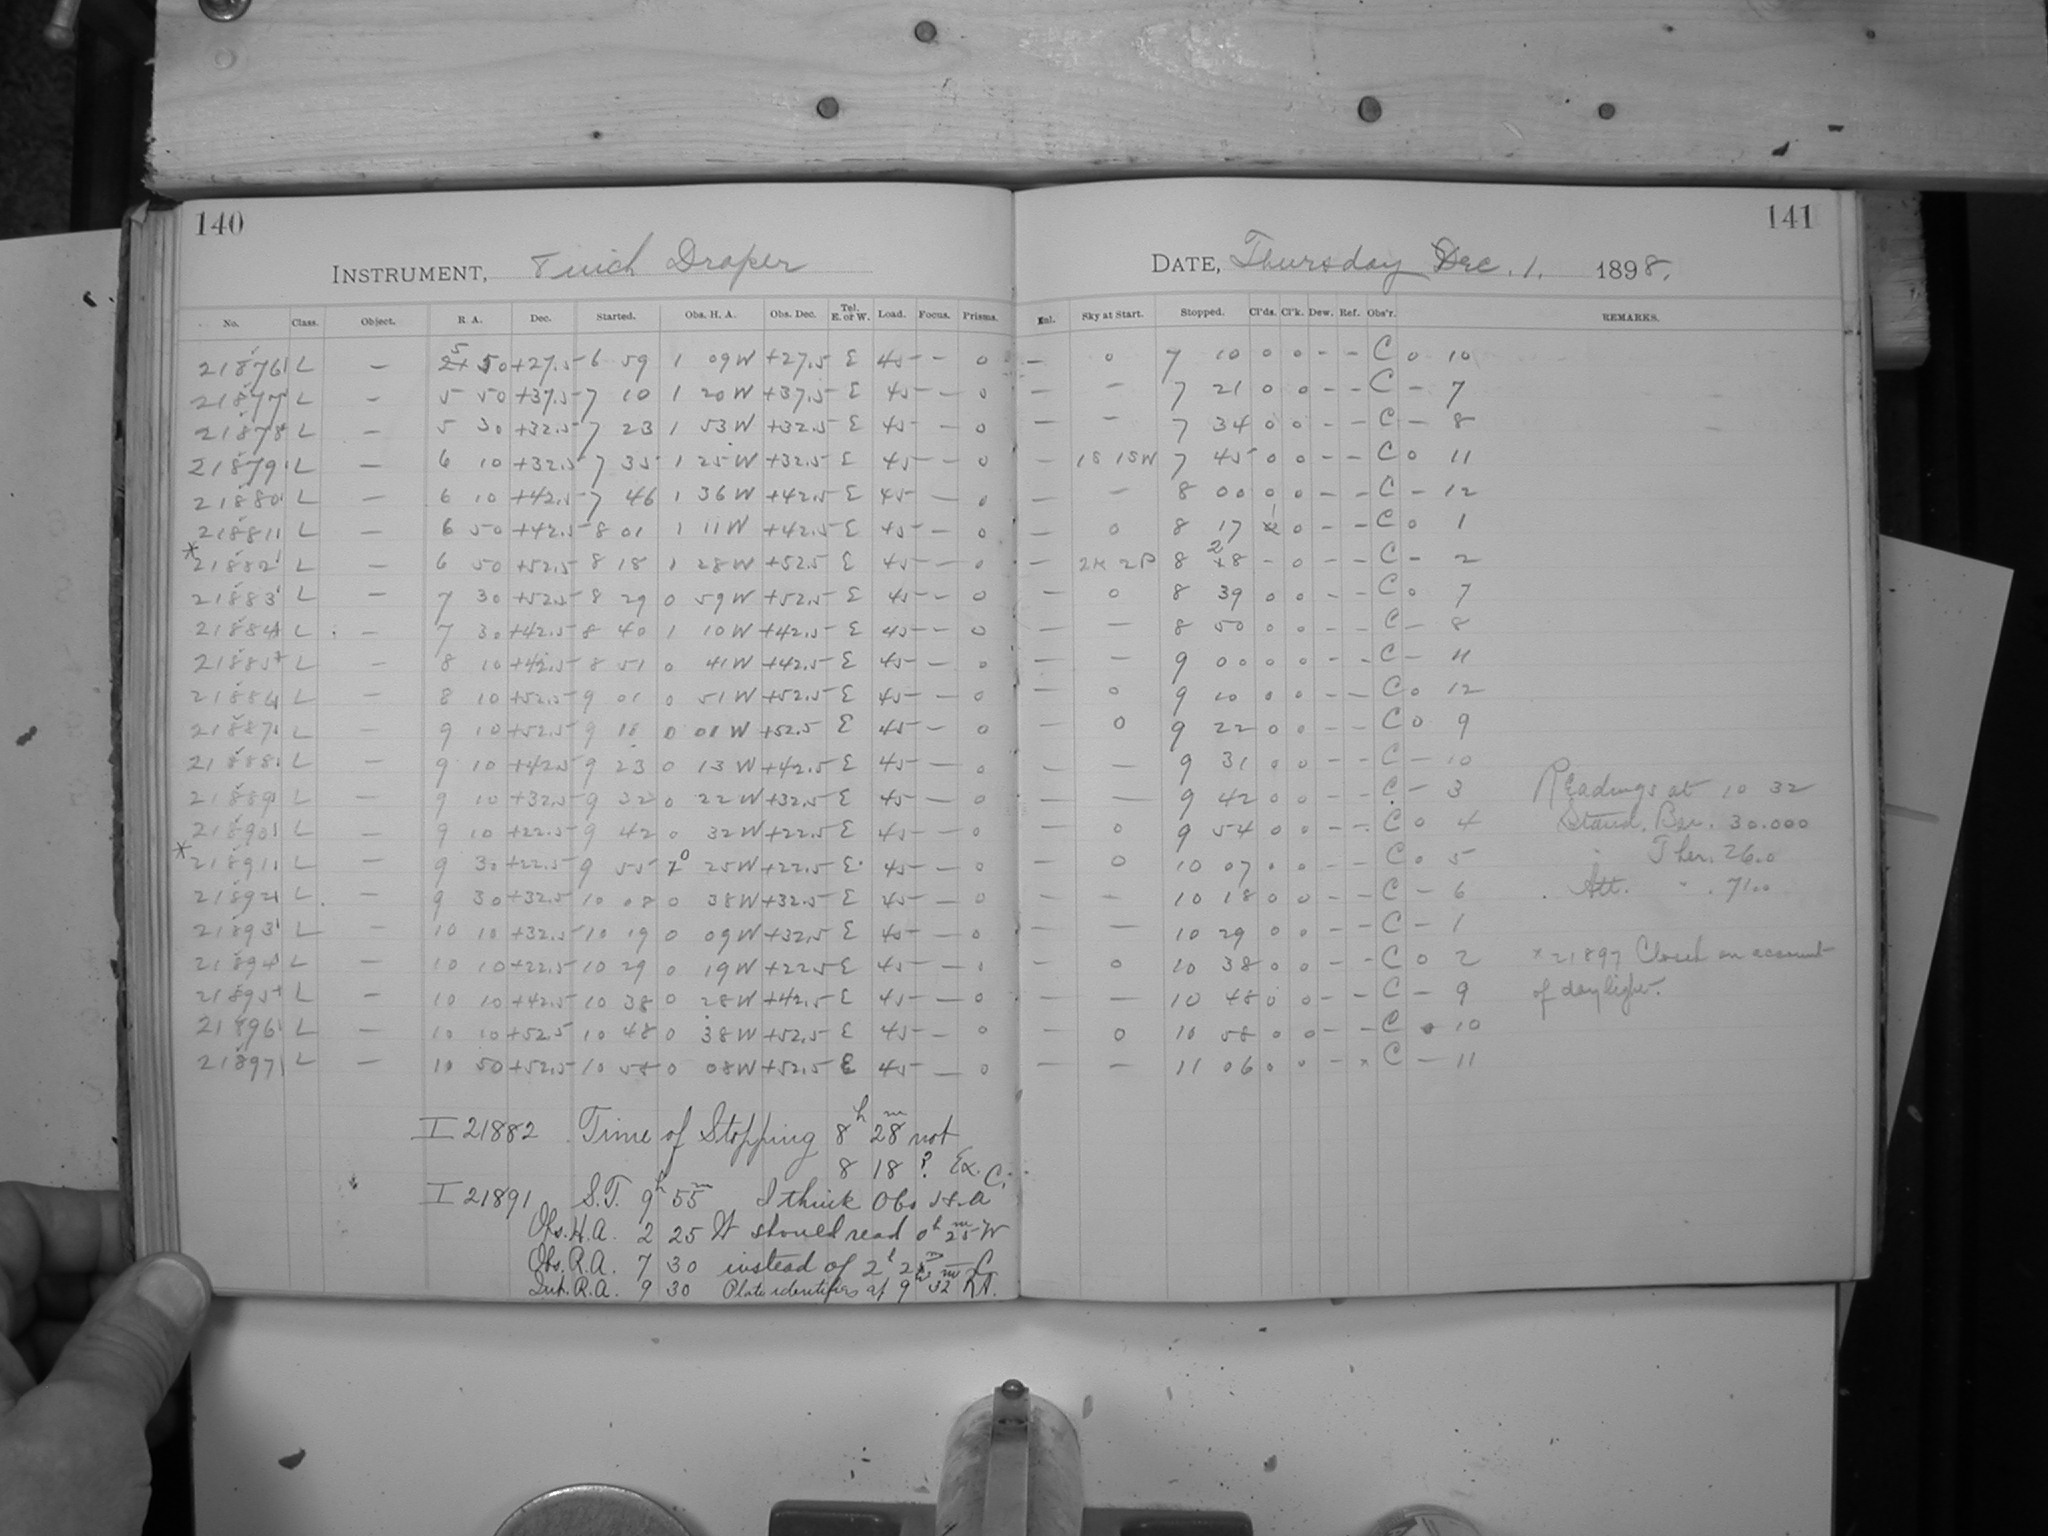 140
141
INSTRUMENT, 8 inch Draper
DATE, Thursday Dec. 1. 1898.
No. Class. Object. R. A. Dec. Started. Obs. H. A. Obs. Dec. Tel. E. or W. Load. Focus. Prisms. Enl. Sky at Start. Stopped. Cl'ds. Cl'k. Dew. Ref. Obs'r. REMARKS.
21876 L — 5 50 +27.5 6 59 1 09 W +27.5 E 45 — 0 — 0 7 10 0 0 – – C 0 10
21877 L — 5 50 +37.5 7 10 1 20 W +37.5 E 45 — 0 — — 7 21 0 0 – – C – 7
21878 L — 5 30 +32.5 7 23 1 53 W +32.5 E 45 — 0 — — 7 34 0 0 – – C – 8
21879 L — 6 10 +32.5 7 35 1 25 W +32.5 E 45 — 0 — 1S 1SW 7 45 0 0 – – C 0 11
21880 L — 6 10 +42.5 7 46 1 36 W +42.5 E 45 — 0 — — 8 00 0 0 – – C – 12
21881 L — 6 50 +42.5 8 01 1 11 W +42.5 E 45 — 0 — 0 8 17 1 0 – – C 0 1
* 21882 L — 6 50 +52.5 8 18 1 28 W +52.5 E 45 — 0 — 8 28 – 0 – – C – 2
21883 L — 7 30 +52.5 8 29 0 59 W +52.5 E 45 — 0 — 0 8 39 0 0 – – C 0 7
21884 L — 7 30 +42.5 8 40 1 10 W +42.5 E 45 — 0 — — 8 50 0 0 – – C – 8
21885 L — 8 10 +42.5 8 51 0 41 W +42.5 E 45 — 0 — — 9 00 0 0 – – C – 11
21886 L — 8 10 +52.5 9 01 0 51 W +52.5 E 45 — 0 — 0 9 10 0 0 – – C 0 12
21887 L — 9 10 +52.5 9 0 01 W +52.5 E 45 — 0 — 0 9 22 0 0 – – C 0 9
21888 L — 9 10 +42.5 9 23 0 13 W +42.5 E 45 — 0 — — 9 31 0 0 – – C – 10
21889 L — 9 10 +32.5 9 32 0 22 W +32.5 E 45 — 0 — — 9 42 0 0 – – C – 3 Readings at 10 32
21890 L — 9 10 +22.5 9 42 0 32 W +22.5 E 45 — 0 — 0 9 54 0 0 – – C 0 4 Stand. Bar. 30.000
* 21891 L — 9 30 +22.5 9 55 0 25 W +22.5 E 45 — 0 — 0 10 07 0 0 – – C 0 5 " Ther. 26.0
21892 L — 9 30 +32.5 10 08 0 38 W +32.5 E 45 — 0 — — 10 18 0 0 – – C – 6 Att. " 71.0
21893 L — 10 10 +32.5 10 19 0 09 W +32.5 E 45 — 0 — — 10 29 0 0 – – C – 1
21894 L — 10 10 +22.5 10 29 0 19 W +22.5 E 45 — 0 — 0 10 38 0 0 – – C 0 2 * 21897 Closed on account
21895 L — 10 10 +42.5 10 38 0 28 W +42.5 E 45 — 0 — — 10 48 0 0 – – C – 9 of daylight.
21896 L — 10 10 +52.5 10 48 0 38 W +52.5 E 45 — 0 — 0 10 58 0 0 – – C 0 10
21897 L — 10 50 +52.5 10 58 0 08 W +52.5 E 45 — 0 — — 11 06 0 0 – – C – 11
I 21882 . Time of Stopping 8h 28m not
8 18 ? Ex. C.
I 21891 S.T. 9h 55m I think Obs H.A
Obs. H.A. 2 25 W should read 0h 25m W
Obs. R.A. 7 30 instead of 2h
Int. R.A. 9 30 Plate identifies at 9h 32m RA.